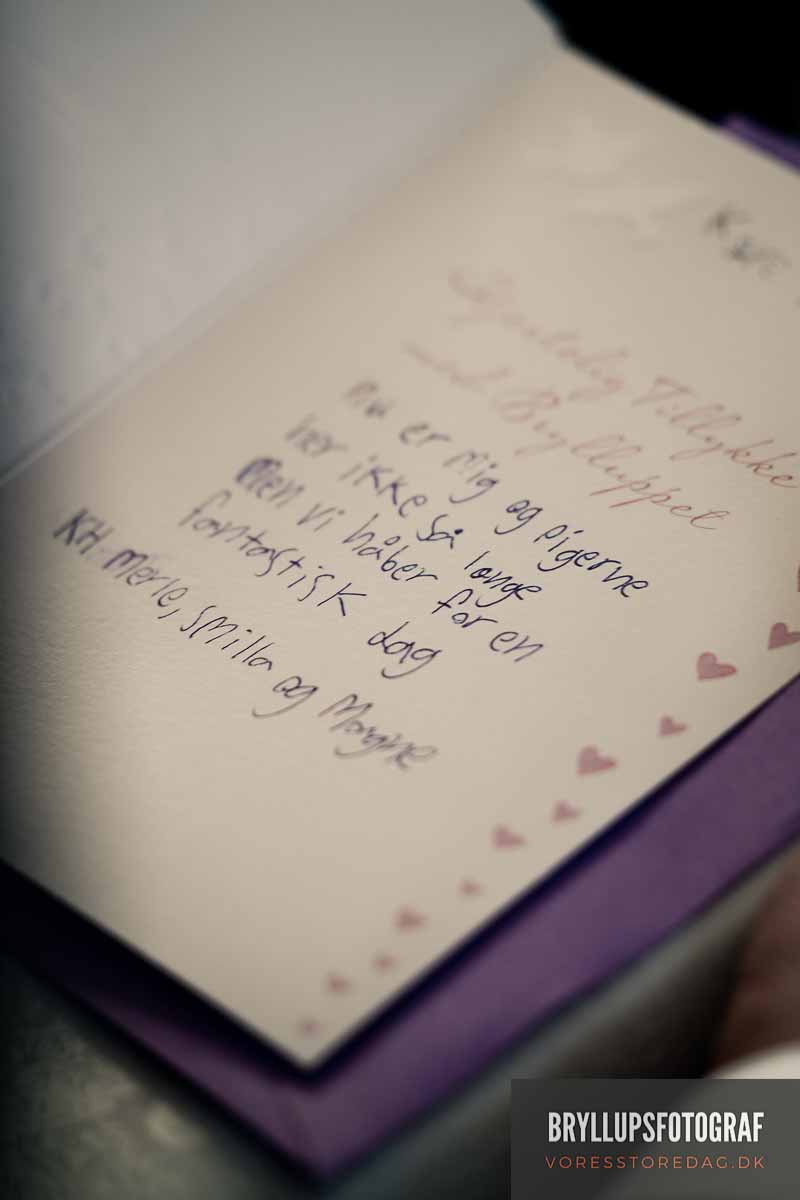 Hjertelig Tillykke
med Brylluppet
nu er mig og pigerne
her ikke så længe
Men vi håber for en
fantastisk dag
KH. Merle, Smilla og
BRYLLUPSFOTOGRAF
VORESSTOREDAG.DK